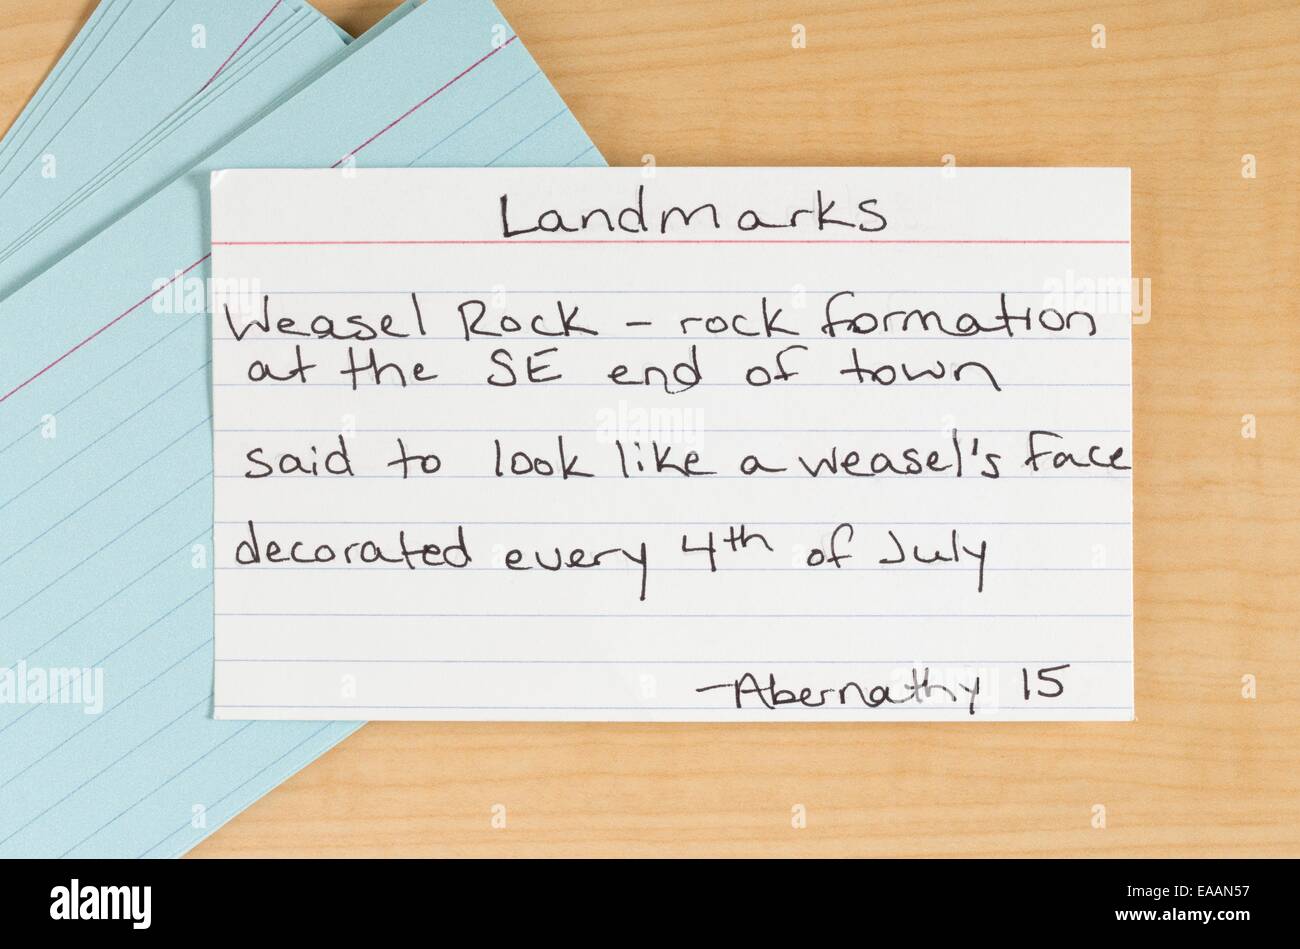 Landmarks
Weasel Rock – rock formation
at the SE end of town
said to look like a weasel's face
decorated every 4th of July
–Abernathy 15
a alamy stock photo
alamy
Image ID: EAAN57
www.alamy.com